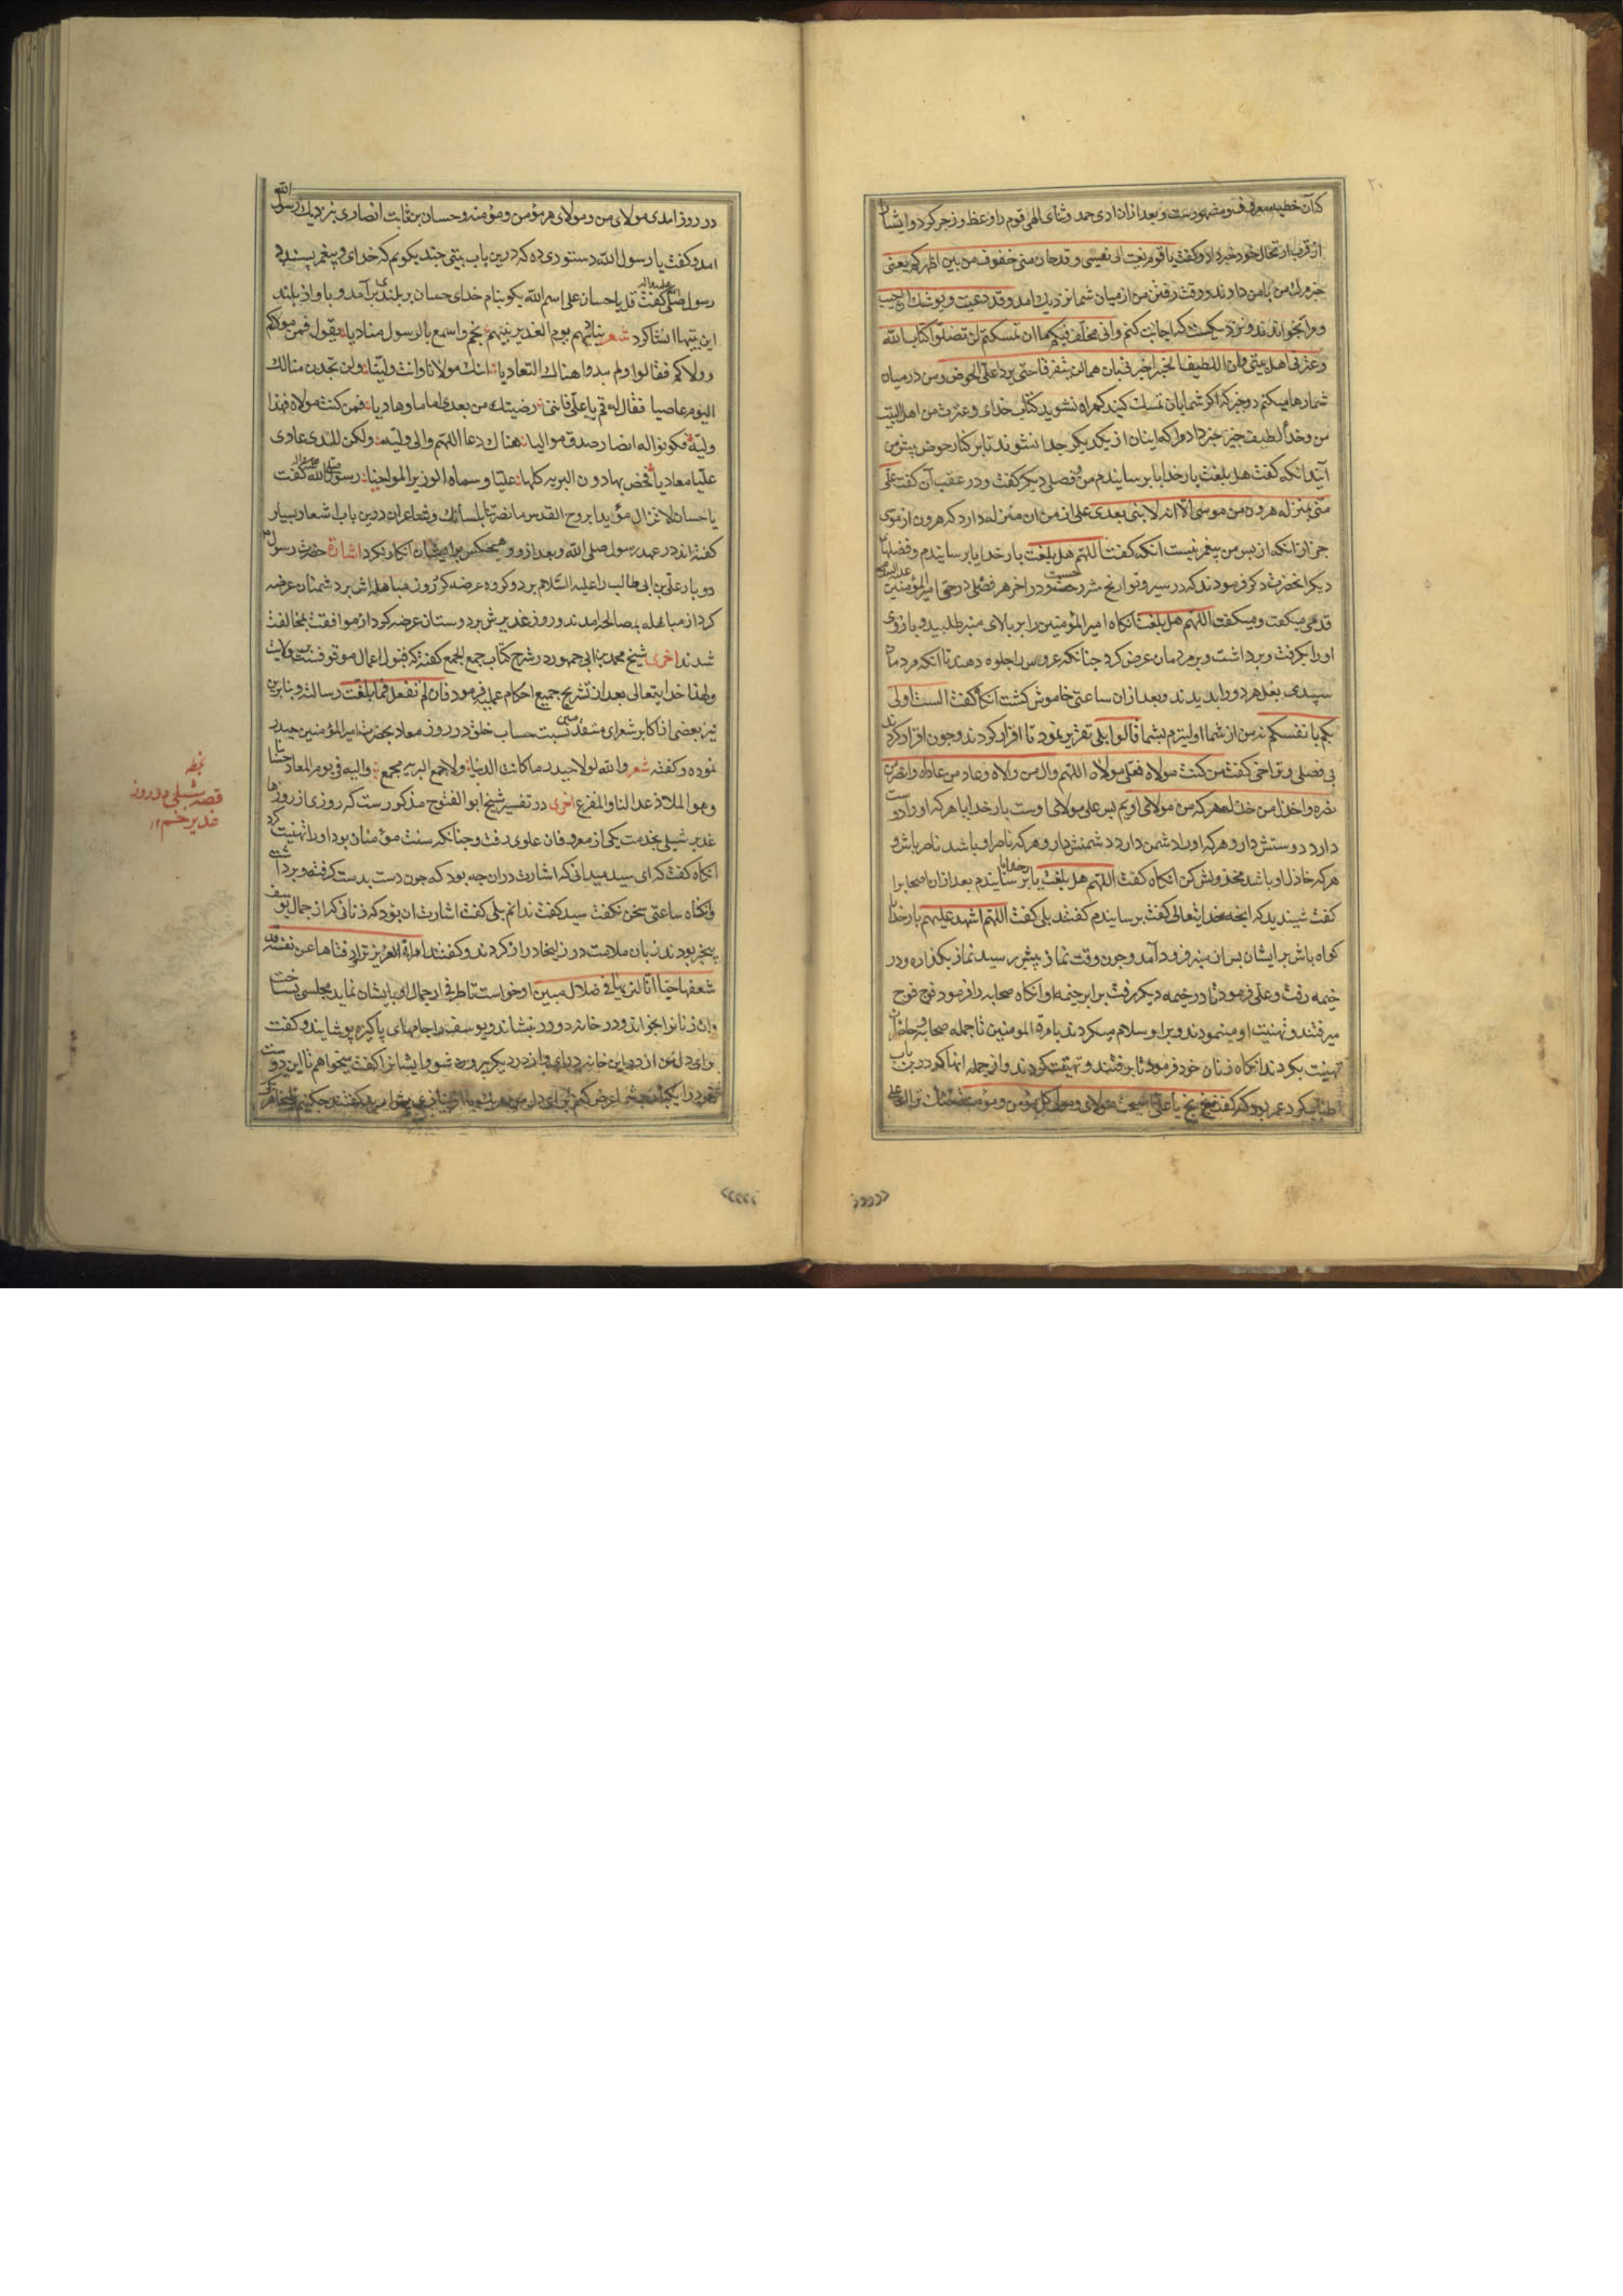 ۲۰
کآن خطبه معروف و مشهورست و بعد ازان ادی حمد و ثنای الهی قوم را وعظ و زجر کرد و ایشان
از قرب ارتحال خود خبر داد و کفت یا قوم نعیت الی نفسی و قد حان منی خفوف من بین اظهرکم یعنی
خبر مرك من بامن دادند و وقت رفتن من از میان شما نزدیك آمد وقد دعیت و یوشك ان اجیب
و مرا بخواندند و نزدیکست که اجابت کنم وانی مخلف فیکم ما ان تمسکتم لن تضلوا کتاب الله
وعترتی اهل بیتی وان اللطیف الخبیر اخبرنی بان هما لن یتفرقا حتی یردا علی الحوض و من در میان
شما رها میکنم دو چیز که اکر شما بآن تمسك کنید کمراه نشوید کتاب خدای و عترت من اهل البیت
من و خدا لطیف خبیر خبر داد مرا که اینان از یکدیکر جدا نشوند تا بر کنار حوض پیش من
آیند انکه کفت هل بلغت بار خدایا برسانیدم من فصلی دیکر کفت و در عقب آن کفت علی
منی بمنزله هرون من موسی الا انه لا نبی بعدی علی از من ان منزله دارد که هرون از موسی
جز ازانکه از پس من پیغمبر نیست انکه کفت اللهم هل بلغت بار خدایا برسانیدم و فضلهای
دیکر انحضرت ذکر فرمودند که در سیر و تواریخ مشروحست و در اخر هر فصلی در حق امیرالمؤمنین علیه السلام
قدمی میکفت و میکفت اللهم هل بلغت آنکاه امیر المؤمنین را بر بالای منبر طلبید و بازوی
او را بکرفت و برداشت و برمردمان عرض کرد چنانکه عروس را جلوه دهند تا انکه مردمان
سپیدی بغل هر دو را بدیدند و بعد ازان ساعتی خاموش کشت آنکاه کفت الست اولی
بکم بانفسکم نه من از شما اولیترم بشما قالوا بلی تقریر نمود تا اقرار کردند و چون اقرار کردند
بی فصلی و تراخی کفت من کنت مولاه فعلی مولاه اللهم وال من والاه وعاد من عاداه وانصر من
نصره واخذل من خذله هر که من مولای اویم پس علی مولای اوست بار خدایا هر که او را دوست
دارد دوستش دار و هر که او را دشمن دارد دشمنش دار و هر که ناصر او باشد ناصر باش و
هر که خاذل او باشد مخذولش کن انکاه کفت اللهم هل بلغت بار خدایا برسانیدم بعد ازان اصحاب را
کفت شنیدید که انچه خدایتعالی کفت برسانیدم کفتند بلی کفت اللهم اشهد علیهم بار خدایا
کواه باش بر ایشان پس از منبر فرود آمد و چون وقت نماز پیشین رسید نماز بکذارد و در
خیمه رفت و علی را فرمود تا در خیمه دیکر رفت برابر خیمه او انکاه صحابه را فرمود فوج فوج
میرفتند و تهنیت او مینمودند و برو سلام میکردند بامرة المومنین تا جمله صحابه و حاضران
تهنیت بکردند انکاه زنان خود فرمود تا برفتند و تهنیت کردند و از جمله انها که درین باب
اطناب کرد عمر بود که کفت بخ بخ یا علی اصبحت مولای و مولی کل مؤمن و مؤمنة
در روز آمدی مولای من و مولای هر مؤمن و مؤمنه و حسان بن ثابت انصاری بنزدیك رسول الله
آمد و کفت یا رسول الله دستوری ده که درین باب بیتی چند بکویم که خدای و پیغمبر پسندد
رسول صلی الله علیه واله کفت قل یا حسان علی اسم الله بکو بنام خدای حسان بر بلندی برآمد و باواز بلند
این بیتها انشا کرد شعر ینادیهم یوم الغدیر نبیهم بخم واسمع بالرسول منادیا یقول فمن مولاکم
وولیکم فقالوا ولم یبدوا هناك التعادیا الهك مولانا وانت ولینا ولن تجدن منا لك
الیوم عاصیا فقال له قم یا علی فاننی رضیتك من بعدی اماما وهادیا فمن کنت مولاه فهذا
ولیه فکونوا له انصار صدق موالیا هناك دعا اللهم وال ولیه وکن للذی عادی
علیا معادیا فخص بها دون البریه کلها علیا وسماه الوزیر المواخیا رسول الله صلی الله علیه واله کفت
یا حسان لا تزال مؤیدا بروح القدس ما نصرتنا بلسانك و شاعران درین باب اشعار بسیار
کفته اند در عهد رسول صلی الله و بعد ازو و هیچکس بر ایشان انکار نکرد اشارة حضرت رسول
دو بار علی بن ابی طالب را علیه السلام بر دو کروه عرضه کرد روز مباهله اش بر دشمنان عرضه
کرد از مباهله بمصالحه آمدند و روز غدیرش بر دوستان عرضه کرد از موافقت بمخالفت
شدند اخری شیخ محمد بن ابی جمهور در شرح کتاب جمع الجمع کفته که قبول اعمال موقوفست بر ولایت
ولهذا خدایتعالی بعد از تشریح جمیع احکام عملیه فرمود فان لم تفعل فما بلغت رسالته و بنابرین
نیز بعضی از اکابر شعرای متقدمین نسبت حساب خلق در روز معاد بحضرت امیر المؤمنین حیدر
نموده و کفته شعر والله لولا حیدر ما کانت الدنیا ولا جمع البریه مجمع والیه فی یوم المعاد حسابنا
وهو الملاذ غدا لنا والمفزع اخری در تفسیر شیخ ابو الفتوح مذکورست که روزی از روزها
غدیر شبلی بخدمت یکی از معروفان علوی رفت و چنانکه سنت مؤمنان بود او را تهنیت کرد
آنکاه کفت که ای سید میدانی که اشارت دران چه بود که چون دست بدست کرفته و برداشت
وانکاه ساعتی سخن نکفت سید کفت ندانم بلی کفت اشارت ان بود که زنانی که از جمال یوسف
بیخبر بودند زبان ملامت در زلیخا دراز کردند و کفتند امراة العزیز تراود فتاها عن نفسه قد
شغفها حبا انا لنریها فی ضلال مبین او خواست تا طرفی از جمال او بایشان نماید مجلسی بساخت
وان زنانرا بخواند و در خانه دو در بنشاند و یوسف را جامهای پاکیزه پوشانید و کفت
برای دل من ازین خانه درآی و ازدر دیکر بیرون شو و ایشانرا کفت میخواهم تا این دوست
بخط
قصه شبلی در روز
غدیر خم ۱۲
در روز